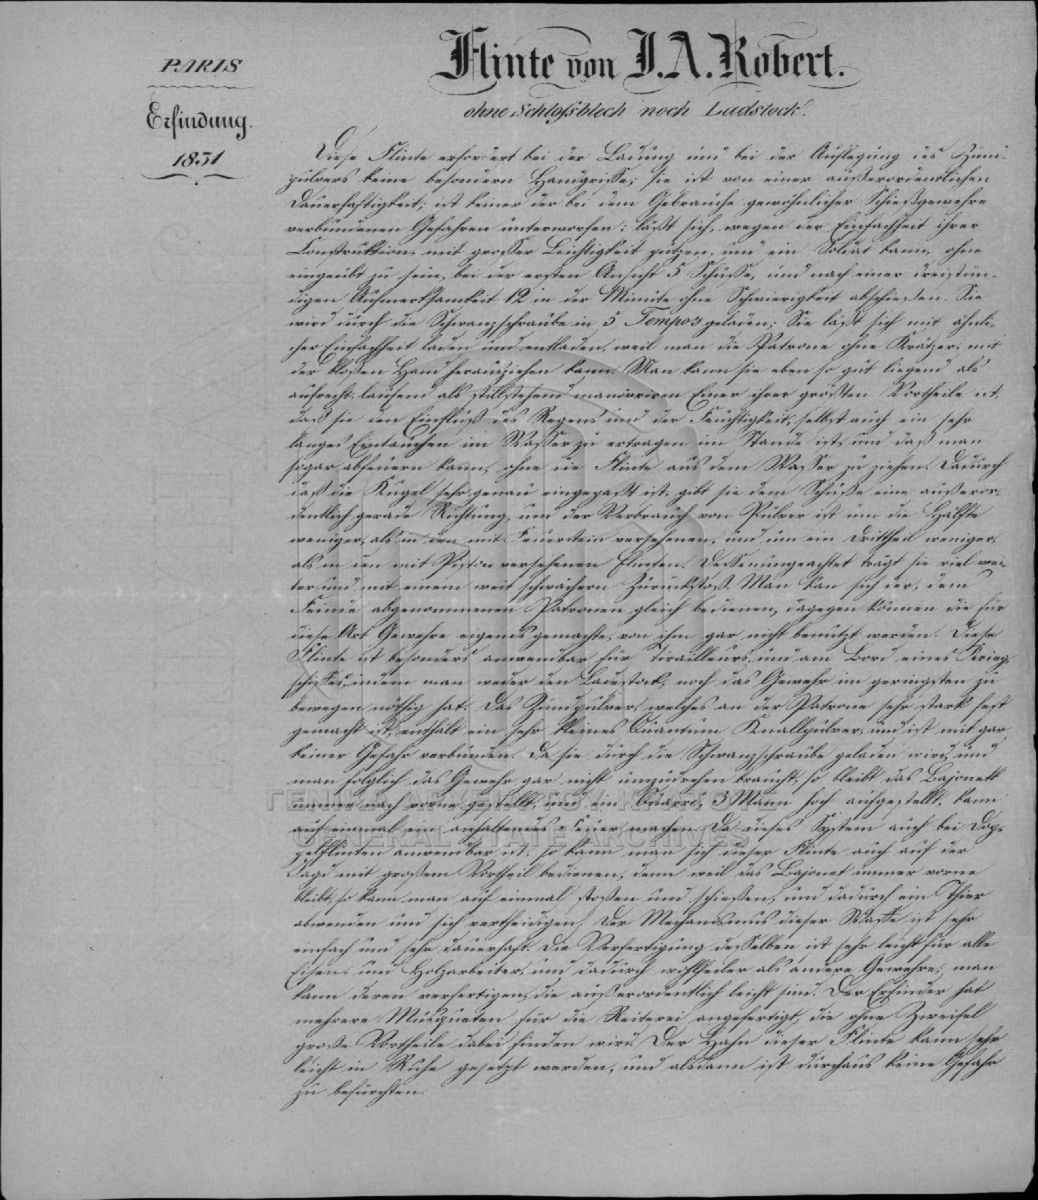 PARIS
Erfindung.
1831
Flinte von J. A. Robert.
ohne Schloßblech noch Ladstock.
Diese Flinte erfordert bei der Ladung und bei der Auflegung des Zünd-
pulvers keine besondern Handgriffe; sie ist von einer außerordentlichen
Dauerhaftigkeit; ist keiner der bei dem Gebrauche gewöhnlicher Schießgewehre
verbundenen Gefahren unterworfen; läßt sich, wegen der Einfachheit ihrer
Construktion mit großer Leichtigkeit putzen, und ein Soldat kann, ohne
eingeübt zu sein, bei der ersten Ansicht 5 Schüsse, und nach einer dreistün-
digen Aufmerksamkeit 12 in der Minute ohne Schwierigkeit abschießen. Sie
wird durch die Schwanzschraube in 3 Tempos geladen; Sie läßt sich mit ähnli-
cher Einfachheit laden und entladen, weil man die Patrone ohne Krätzer, mit
der bloßen Hand herausziehen kann. Man kann sie eben so gut liegend als
aufrecht, laufend als stillstehend manövriren. Einer ihrer größten Vortheile ist,
daß sie den Einfluß des Regens und der Feuchtigkeit, selbst auch ein sehr
langes Eintauchen im Wasser zu ertragen im Stande ist, und daß man
sogar abfeuern kann, ohne die Flinte aus dem Wasser zu ziehen. Dadurch
daß die Kugel sehr genau eingepaßt ist, gibt sie dem Schuße eine außeror-
dentlich gerade Richtung, und der Verbrauch von Pulver ist um die Hälfte
weniger, als in den mit Feuerstein versehenen, und um ein Drittheil weniger,
als in den mit Piston versehenen Flinten. Dessenungeachtet trägt sie viel wei-
ter und mit einem weit schwächern Zurückstoß. Man kan sich der, dem
Feinde abgenommenen Patronen gleich bedienen, dagegen können die für
diese Art Gewehre eigends gemachte, von ihm gar nicht benutzt werden. Diese
Flinte ist besonders anwendbar für Tirailleurs, und am Bord eines Krieg-
schiffes, indem man weder den Ladestock, noch das Gewehr im geringsten zu
bewegen nöthig hat. Das Zündpulver, welches an der Patrone sehr stark fest
gemacht ist, enthält ein sehr kleines Quantum Knallpulver, und ist mit gar
keiner Gefahr verbunden. Da sie durch die Schwanzschraube geladen wird, und
man folglich das Gewehr gar nicht umzudrehen braucht, so bleibt das Bajonett
immer nach vorne gestellt, und ein Quarré, 3 Mann hoch aufgestellt, kann
auf einmal ein anhaltendes Feuer machen. Da dieses System auch bei Dop-
pelflinten anwendbar ist, so kann man sich dieser Flinte auch auf der
Jagd mit großem Vortheil bedienen, denn weil das Bajonet immer vorne
bleibt, so kann man auf einmal stoßen und schießen, und dadurch ein Thier
abwenden und sich vertheidigen. Der Mechanismus dieser Waffe ist sehr
einfach und sehr dauerhaft. Die Verfertigung desselben ist sehr leicht für alle
Eisen- und Holzarbeiter, und dadurch wohlfeiler als andere Gewehre; man
kann deren verfertigen, die außerordentlich leicht sind. Der Erfinder hat
mehrere Musqueten für die Reiterei angefertigt, die ohne Zweifel
große Vortheile dabei finden wird. Der Hahn dieser Flinte kann sehr
leicht in Ruhe gesetzt werden, und alsdann ist durchaus keine Gefahr
zu befürchten.
ΓΕΝΙΚΑ ΑΡΧΕΙΑ ΤΟΥ ΚΡΑΤΟΥΣ
GENERAL STATE ARCHIVES